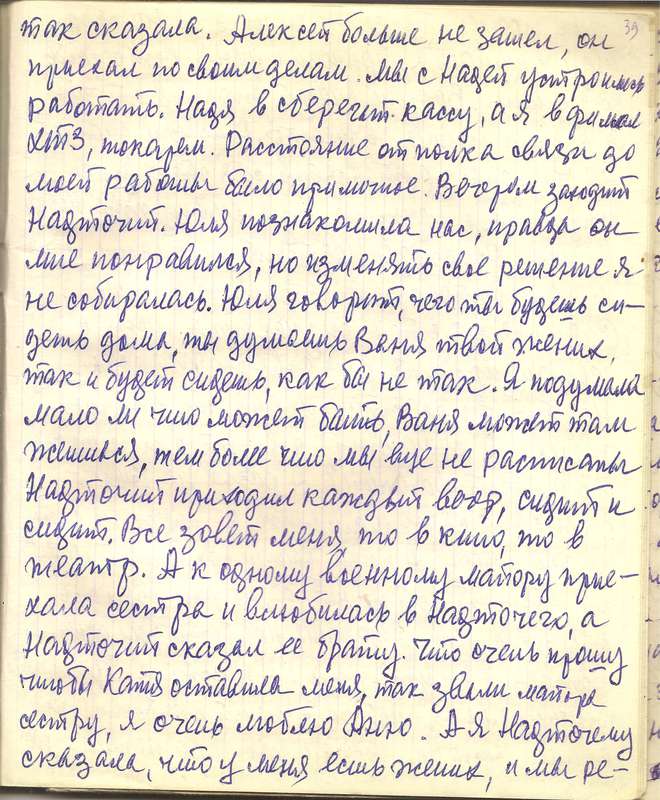 39
так сказала. Алексей больше не зашел, он
приехал по своим делам. Мы с Надей устроились
работать. Надя в сберегат. кассу, а я в филиал
ХТЗ, токарем. Расстояние от полка связи до
моей работы было приличное. Вечером заходит
Надточий. Юля познакомила нас, правда он
мне понравился, но изменять свое решение я
не собиралась. Юля говорит, чего ты будешь си-
деть дома, ты думаешь Ваня твой жених,
так и будет сидеть, как бы не так. Я подумала
мало ли что может быть, Ваня может там
женится, тем более что мы еще не расписаны
Надточий приходил каждый веч., сидит и
сидит. Все зовет меня, то в кино, то в
театр. А к одному военному майору прие-
хала сестра и влюбилась в Надточего, а
Надточий сказал ее брату. Что очень прошу
чтобы Катя оставила меня, так звали майора
сестру, я очень люблю Аню. А я Надточему
сказала, что у меня есть жених, и мы ре-